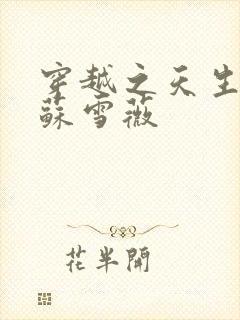 穿越之天生
蘇雪薇
花半開